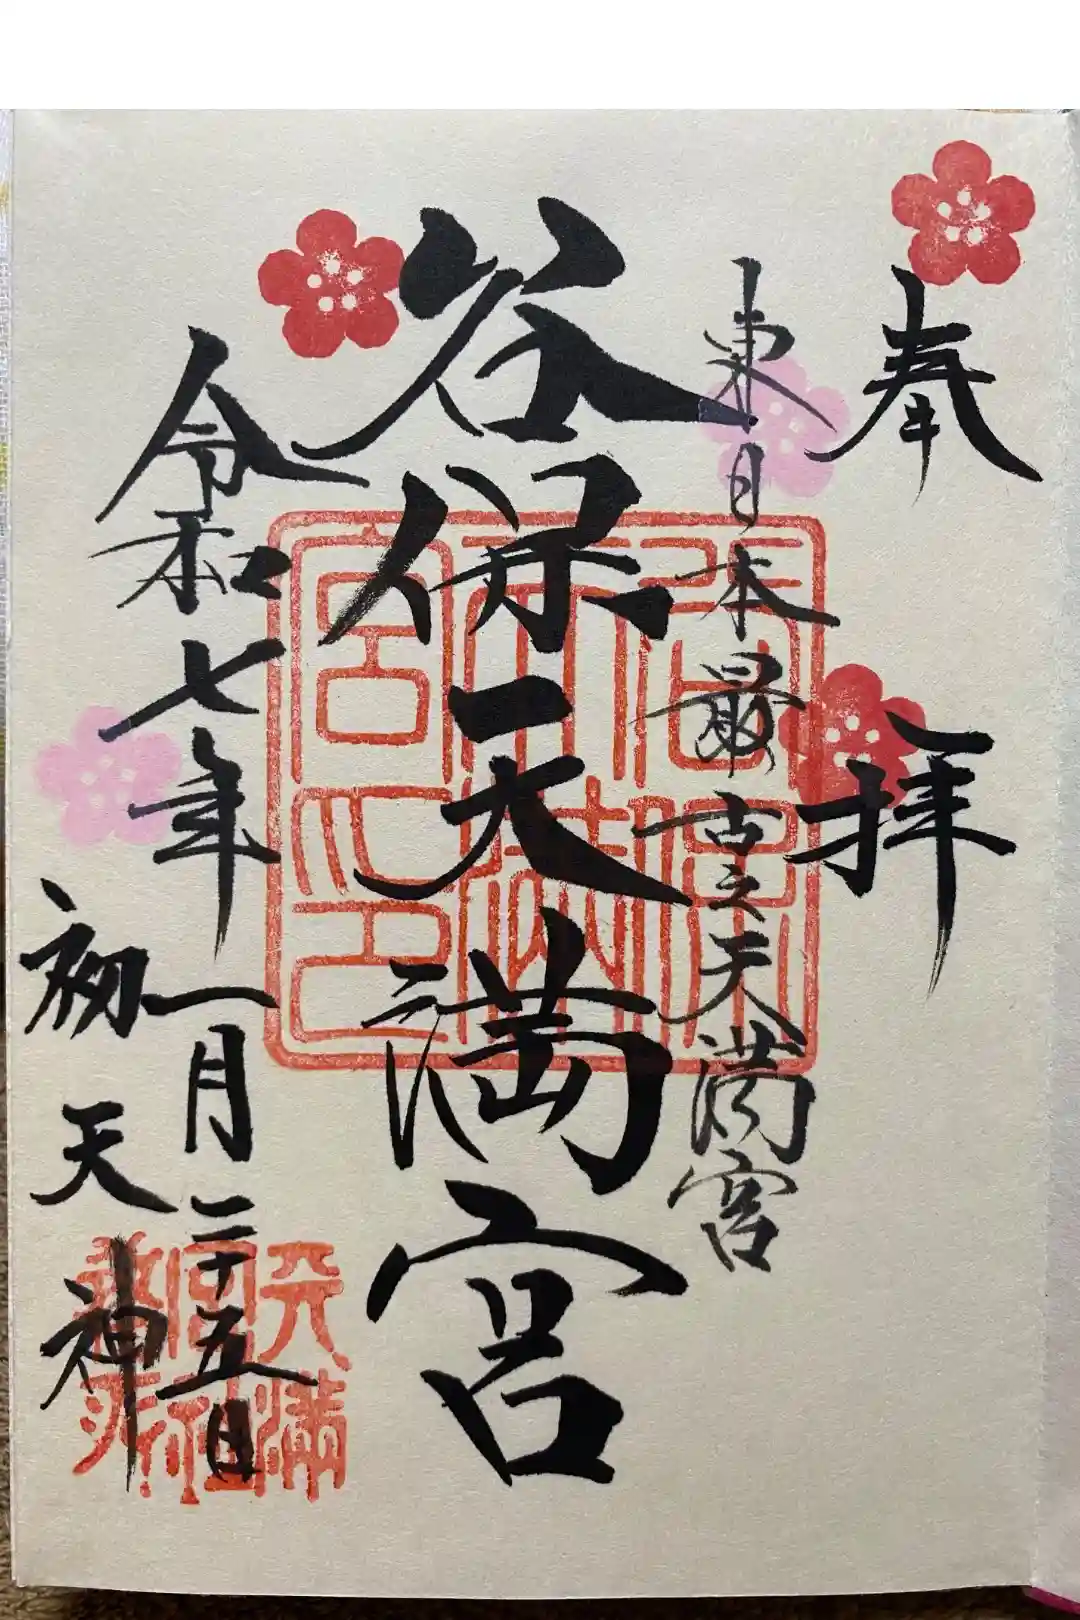 奉拝
東日本最古之天満宮
谷保天満宮
令和七年一月二十五日
初天神
天満宮社務所